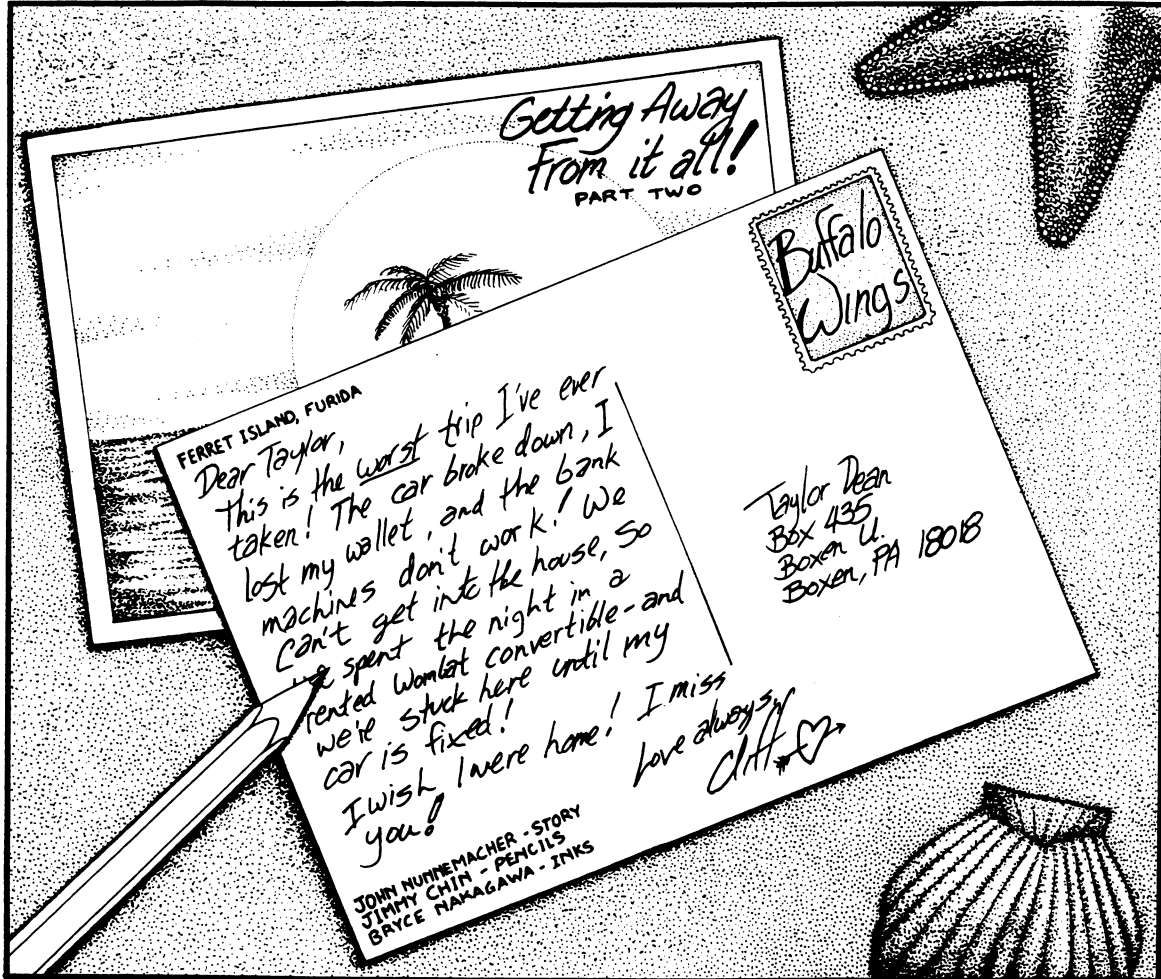 Getting Away
From it all!
PART TWO
Buffalo
Wings
FERRET ISLAND, FURIDA
Dear Taylor,
This is the worst trip I've ever
taken! The car broke down, I
lost my wallet, and the bank
machines don't work! We
can't get into the house, so
we spent the night in a
rented Wombat convertible-and
we're stuck here until my
car is fixed!
I wish I were home! I miss
you!
Love always,
Cliff
Taylor Dean
Box 435
Boxen U.
Boxen, PA 18018
JOHN NUNNEMACHER - STORY
JIMMY CHIN - PENCILS
BRYCE NAKAGAWA - INKS